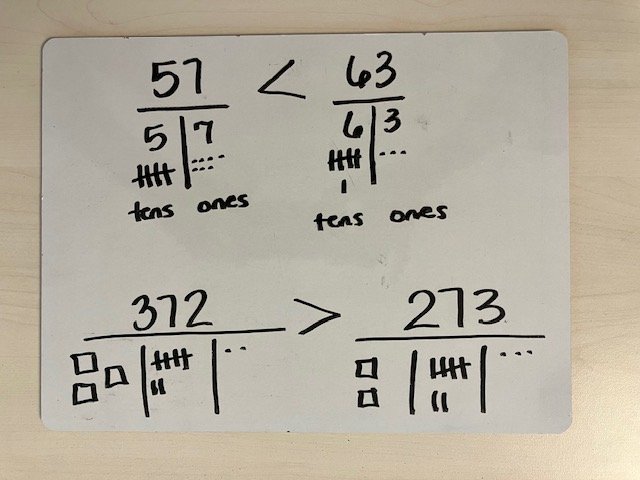 57 < 63
5 7 6 3
tens ones tens ones
372 > 273